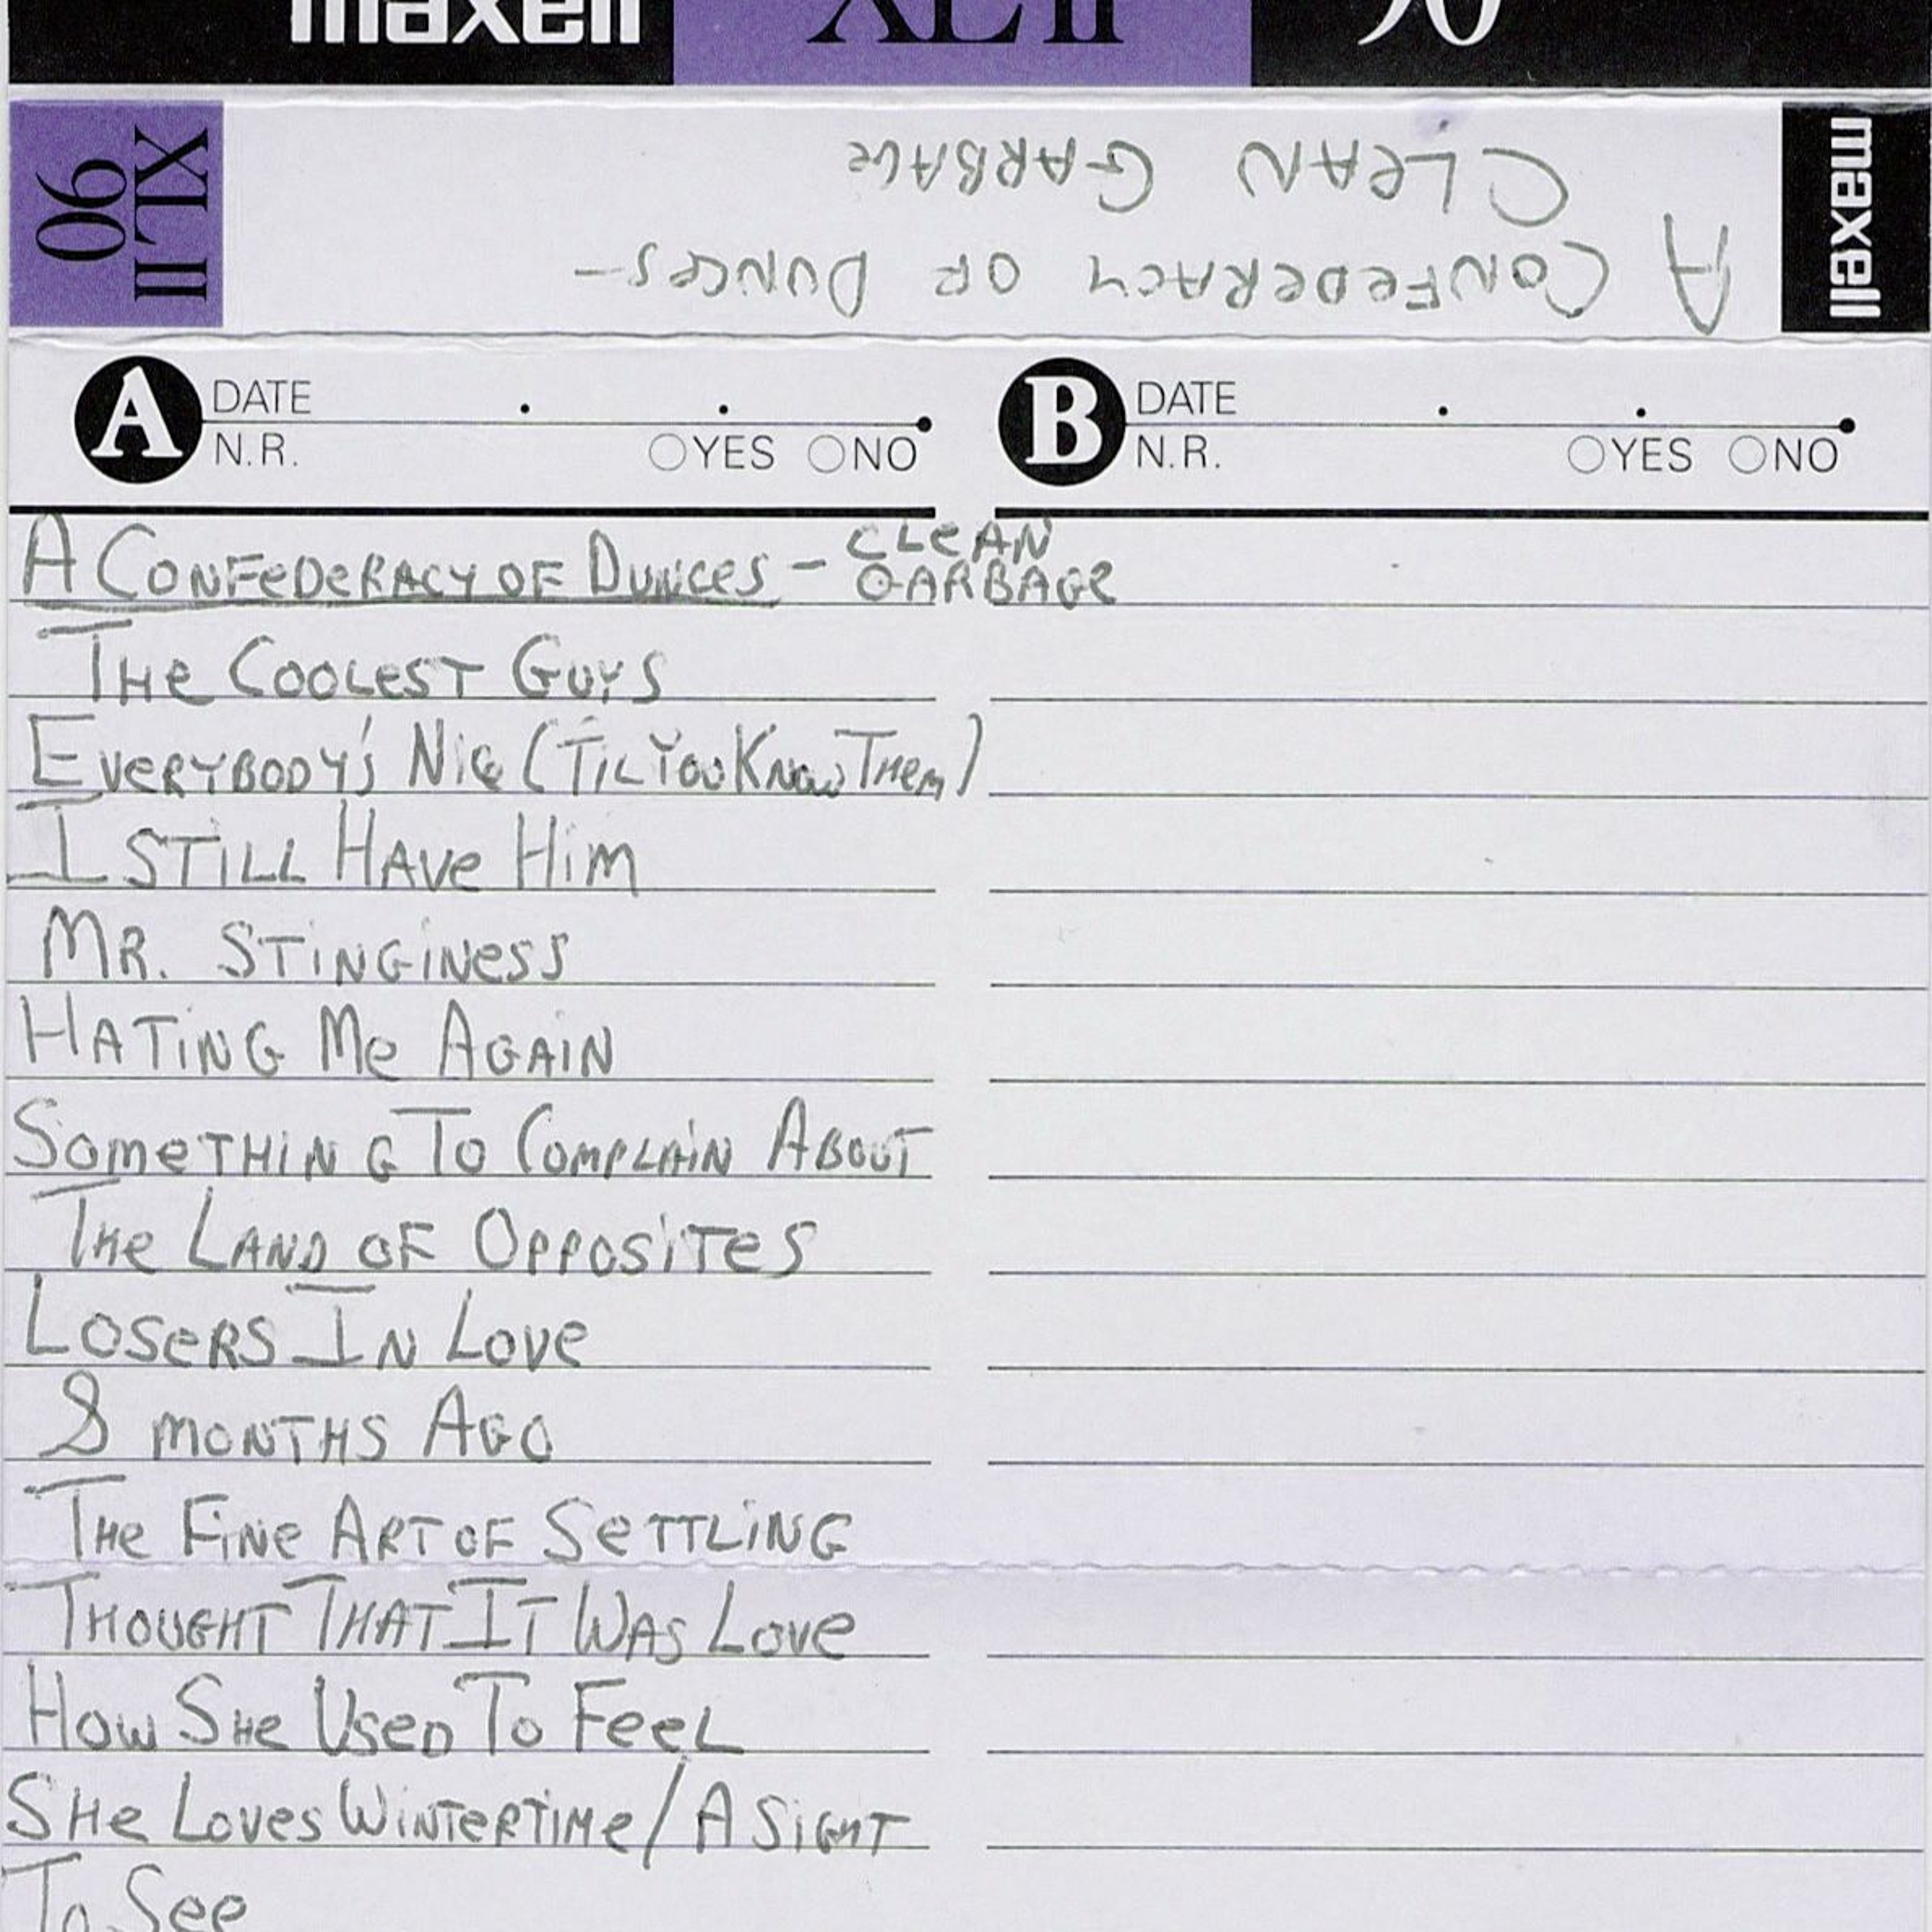 maxell XL II 90
XL II 90
A CONFEDERACY OF DUNCES-
CLEAN GARBAGE
maxell
A DATE
N.R. YES NO
B DATE
N.R. YES NO
A CONFEDERACY OF DUNCES - CLEAN GARBAGE
THE COOLEST GUYS
EVERYBODY'S NICE (TIL YOU KNOW THEM)
I STILL HAVE HIM
MR. STINGINESS
HATING ME AGAIN
SOMETHING TO COMPLAIN ABOUT
THE LAND OF OPPOSITES
LOSERS IN LOVE
8 MONTHS AGO
THE FINE ART OF SETTLING
THOUGHT THAT IT WAS LOVE
HOW SHE USED TO FEEL
SHE LOVES WINTERTIME/A SIGHT
TO SEE